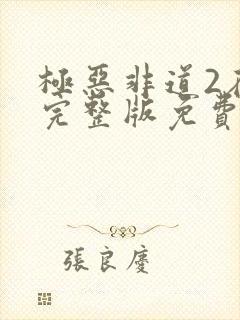 極惡非道2
完整版免費
張良慶